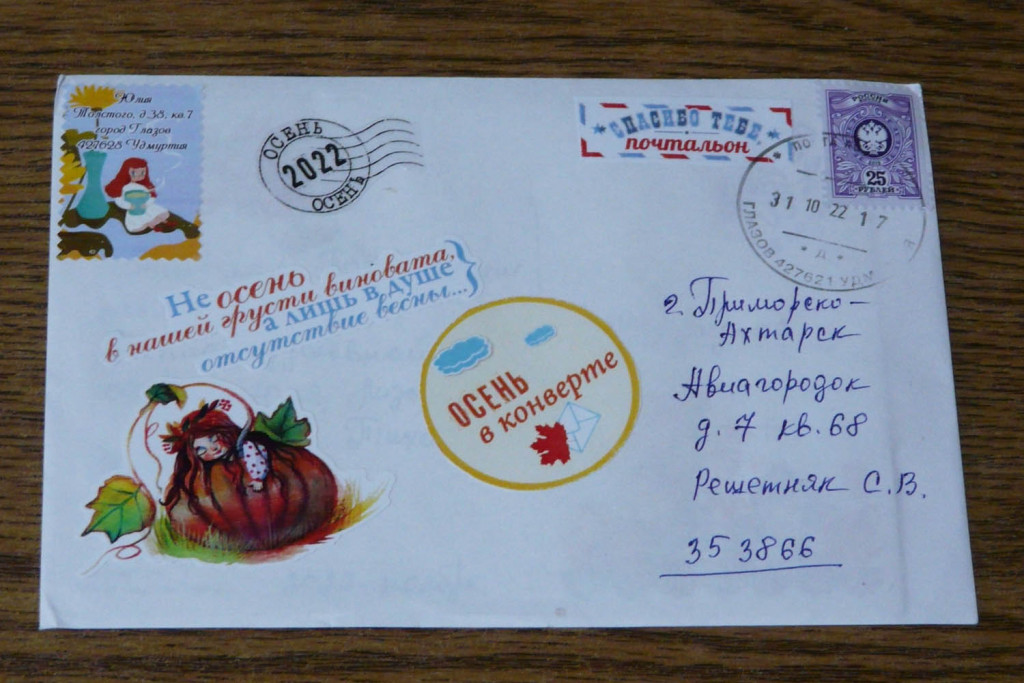 Юлия
Толстого, д.38, кв.7
город Глазов
427628 Удмуртия
ОСЕНЬ
2022
ОСЕНЬ
СПАСИБО ТЕБЕ
почтальон
РОССИЯ
25
РУБЛЕЙ
31 10 22 17
Д
ГЛАЗОВ 427621 УДМ
Не осень
в нашей грусти виновата,
а лишь в душе
отсутствие весны...
ОСЕНЬ
в конверте
г. Приморско-
Ахтарск
Авиагородок
д. 7 кв. 68
Решетняк С.В.
353866